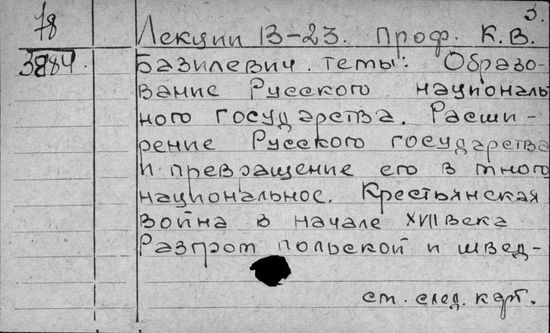 78
3884.
3.
Лекции 13-23. Проф. К.В.
Базилевич. Темы: Образо-
вание Русского националь
ного государства. Расши-
рение Русского государства
и превращение его в много
национальное. Крестьянская
война в начале XVII века
Разгром польской и швед-
см. след. карт.